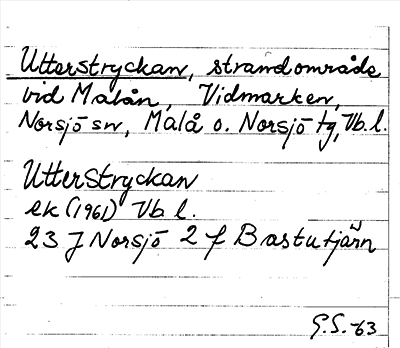 Utterstryckan, strandområde
vid Malån, Vidmarken,
Norsjö sn, Malå o. Norsjö tg, Vb. l.
Utterstryckan
ek (1961) Vb l.
23 J Norsjö 2 f Bastutjärn
G.S. -63